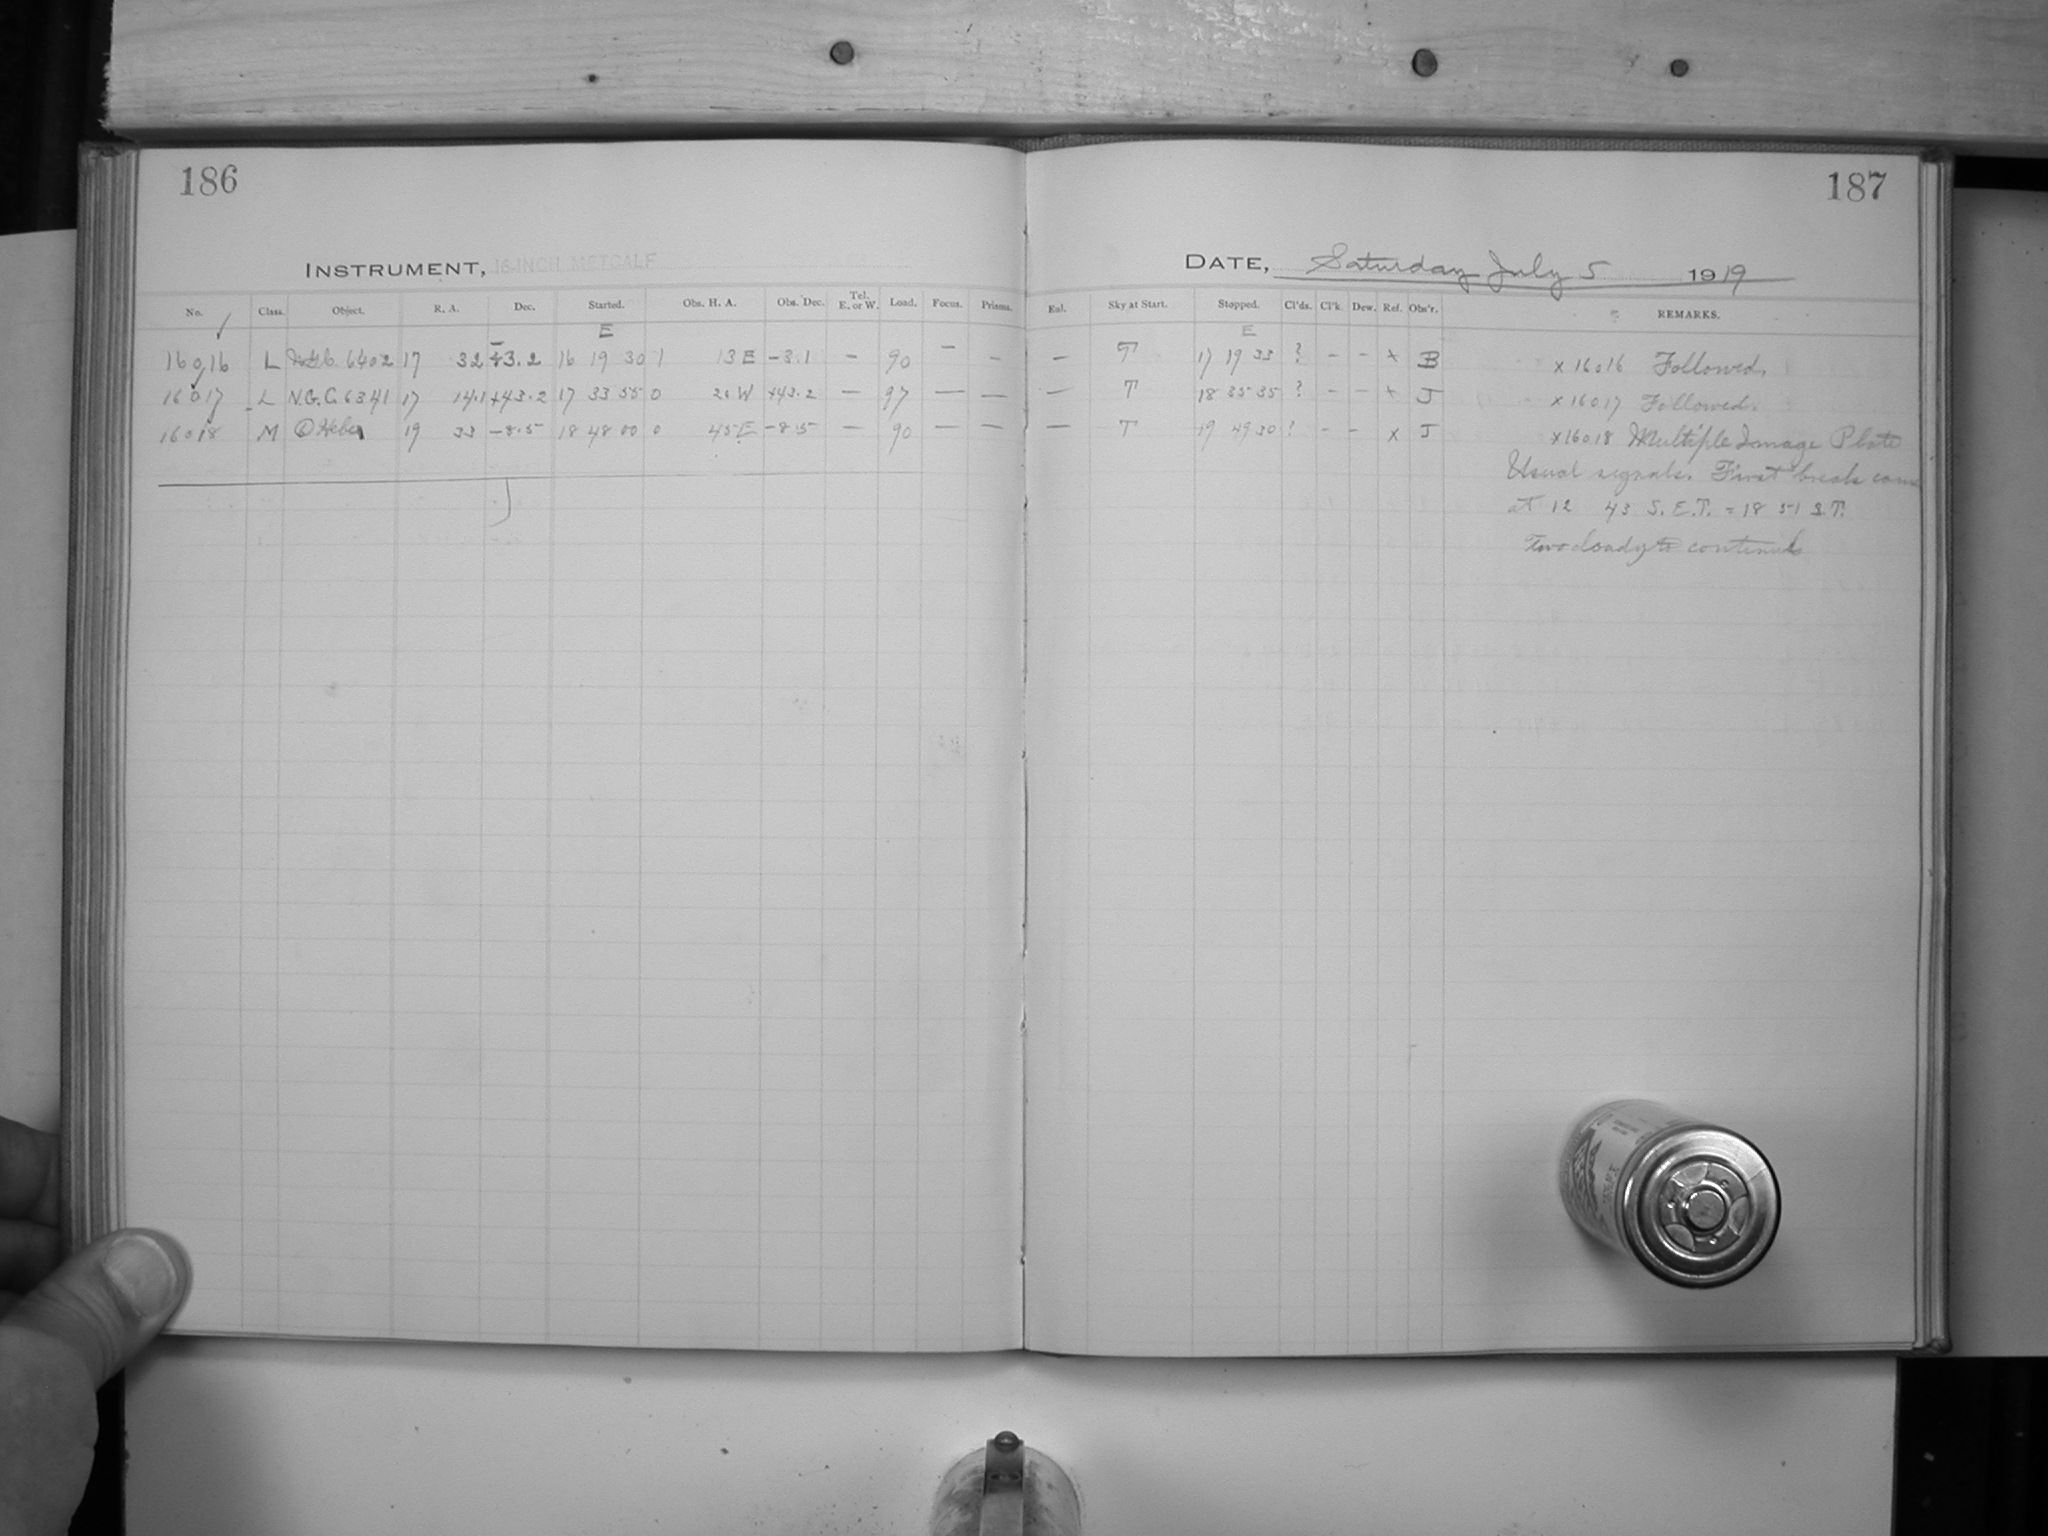 186
INSTRUMENT, 16-INCH METCALF
No. Class. Object. R. A. Dec. Started. Obs. H. A. Obs. Dec. Tel. E. or W. Load. Focus. Prisms.
E
16016 L N.G.C. 6402 17 32 -3.2 16 19 30 1 13 E -3.1 — 90 — —
16017 L N.G.C. 6341 17 14.1 +43.2 17 33 55 0 20 W +43.2 — 97 — —
16018 M Hebe 19 33 -8.5 18 48 00 0 45 E -8.5 — 90 — —
187
DATE, Saturday July 5 1919
Eul. Sky at Start. Stopped. Cl'ds. Cl'k. Dew. Ref. Obs'r. REMARKS.
E
— T 17 19 33 ? - - x B x 16016 Followed.
— T 18 35 35 ? - - x J x 16017 Followed.
— T 19 49 30 ? - - x J x 16018 Multiple Image Plate
Usual signals. First break came
at 12 43 S.E.T. = 18 51 S.T.
Two cloudy to continue